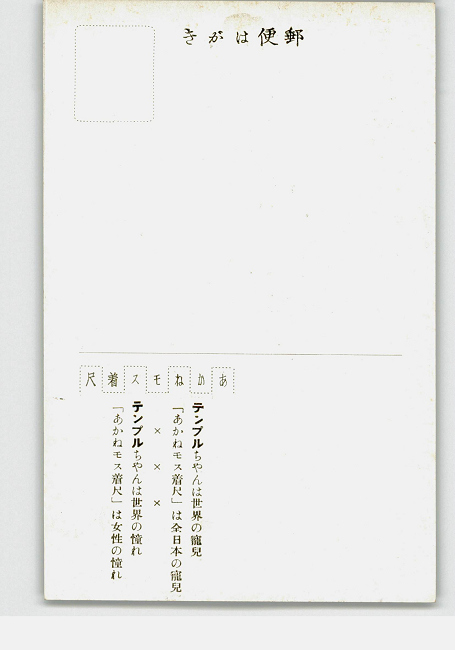 郵便はがき
あかねモス着尺
テンプルちやんは世界の寵兒
「あかねモス着尺」は全日本の寵兒
×××
テンプルちやんは世界の憧れ
「あかねモス着尺」は女性の憧れ